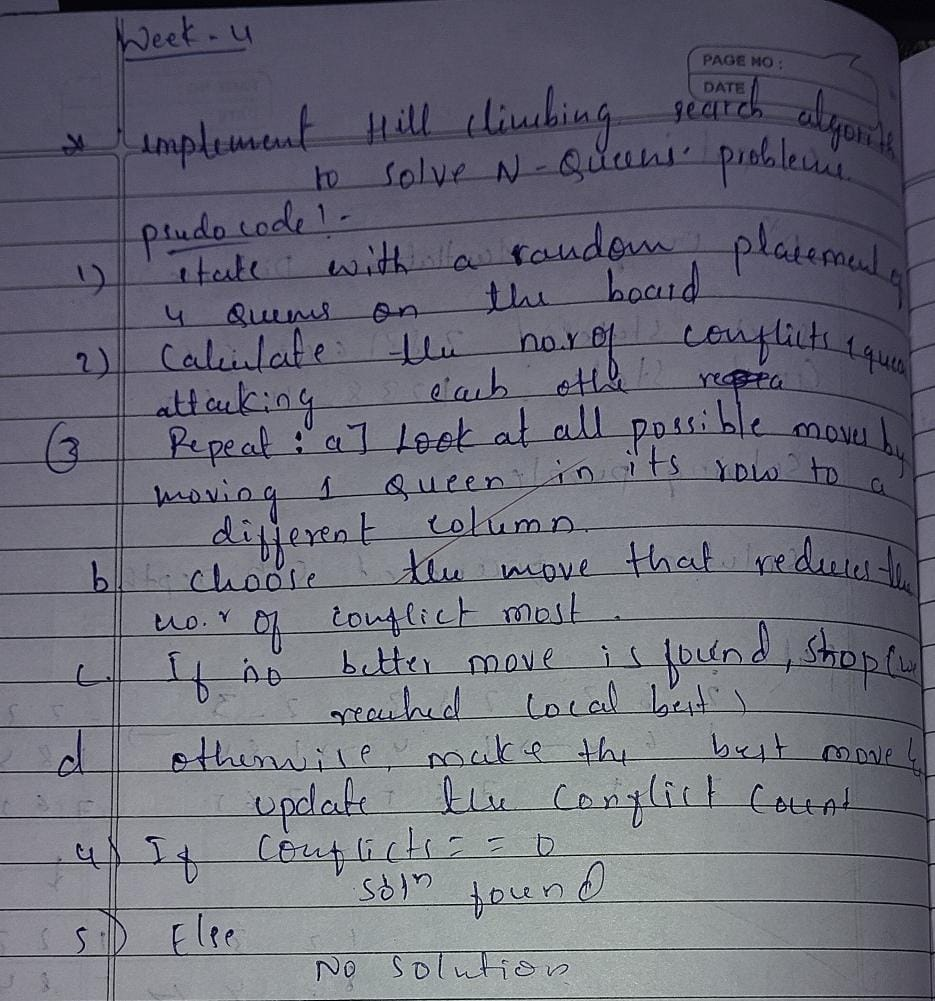 Week - 4
PAGE NO :
DATE
* implement Hill climbing search algorith
to solve N-Queens problem
psudo code :-
1) state with a random placement of
4 Queens on the board
2) Calculate the no. r of conflicts (queen
attacking each othe
3 Repeat : a] Look at all possible moves by
moving 1 Queen in its row to a
different column.
b choose the move that reduces the
no. r of conflict most .
c. If no better move is found, stop (we
reached local best )
d otherwise, make the best move &
update the conflict count
4) If conflicts = = 0
soln found
5) Else
No solution